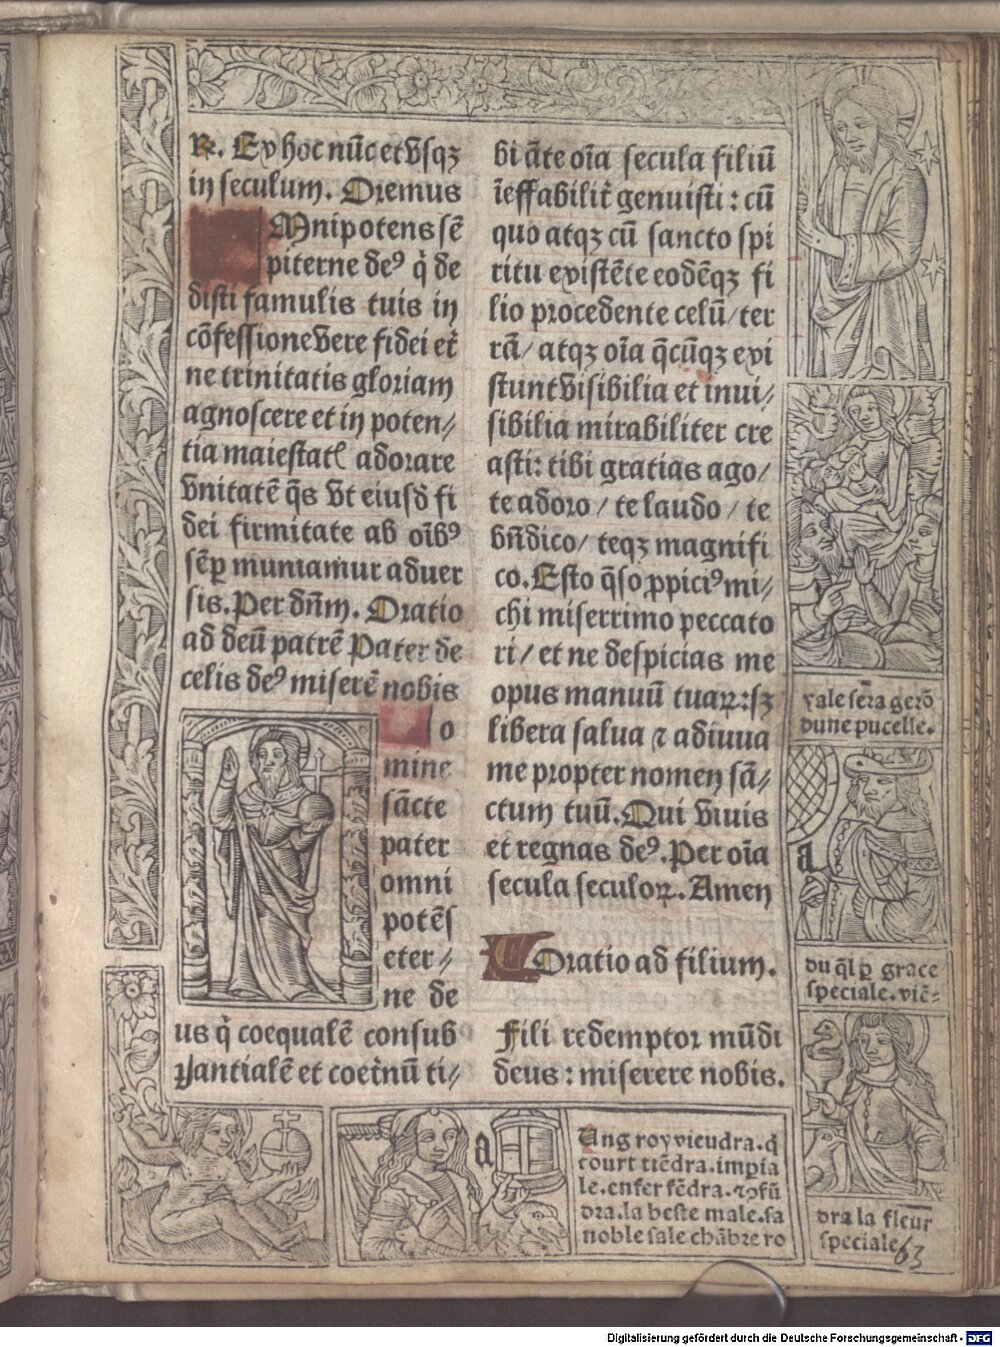 R. Ex hoc nūc et vsqꝫ
in seculum. Oremus
Mnipotens sē
piterne deꝰ q̇ de
disti famulis tuis in
cōfessione vere fidei et̉
ne trinitatis gloriam
agnoscere et in poten⸗
tia maiestatꝭ adorare
vnitatē q̄s vt eiusd̄ fi
dei firmitate ab oīb̄ꝰ
sēꝑ muniamur aduer
sis. Per dn̄m. Oratio
ad deū patrē Pater de
celis deꝰ miserē nobis
o
mine
sācte
pater
omni
potēs
eter⸗
ne de
us q̇ coequalē consub
stantialē et coet̉nū ti⸗
bi āte oīa secula filiū
īeffabilit̉ genuisti : cū
quo atqꝫ cū sancto spi
ritu existēte eodēqꝫ fi
lio procedente celū / ter
rā / atqꝫ oīa q̄cūqꝫ exi
stunt visibilia et inui⸗
sibilia mirabiliter cre
asti: tibi gratias ago /
te adoro / te laudo / te
bn̄dico / teqꝫ magnifi
co. Esto q̄so ꝓpiciꝰ mi⸗
chi miserrimo peccato
ri / et ne despicias me
opus manuū tuaꝝ: sꝫ
libera salua ⁊ adiuua
me propter nomen sā⸗
ctum tuū. Qui viuis
et regnas deꝰ. Per oīa
secula seculoꝝ. Amen
¶ Oratio ad filium.
Fili redemptor mūdi
deus : miserere nobis.
yale sera gerō
dune pucelle.
a
du q̄l ꝑ grace
speciale. viē⸗
dra la fleur
speciale
63
a
Ung roy viendra. q̄
court tiēdra. impia
le. enfer fēdra. ⁊ ꝯfū
dra. la beste male. sa
noble sale chābre ro
Digitalisierung gefördert durch die Deutsche Forschungsgemeinschaft - DFG